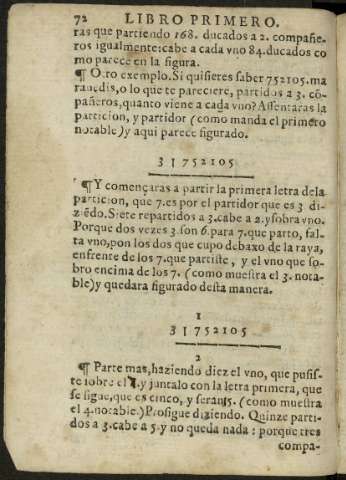 72 LIBRO PRIMERO.
ras que partiendo 168. ducados a 2. compañe-
ros igualmente: cabe a cada vno 84. ducados co
mo parece en la figura.
¶ O.ro exemplo. Si quisieres saber 752105. ma
rauedis, o lo que te pareciere, partidos a 3. cõ-
pañeros, quanto viene a cada vno? Assentaras la
particion, y partidor (como manda el primero
notable) y aqui parece figurado.
3 | 752105
¶ Y començaras a partir la primera letra dela
particion, que 7. es por el partidor que es 3 di-
ziẽdo. Siete repartidos a 3. cabe a 2. y sobra vno.
Porque dos vezes 3. son 6. para 7. que parto, fal-
ta vno, pon los dos que cupo debaxo de la raya,
enfrente de los 7. que partiste, y el vno que so-
bro encima de los 7. (como muestra el 3. nota-
ble) y quedara figurado desta manera.
1
3 | 752105
2
¶ Parte mas, haziendo diez el vno, que pusis-
te sobre el 7. y juntalo con la letra primera, que
se sigue, que es cinco, y seran 15. (como muestra
el 4. notable.) Prosigue diziendo. Quinze parti-
dos a 3. cabe a 5. y no queda nada: porque tres
compa-